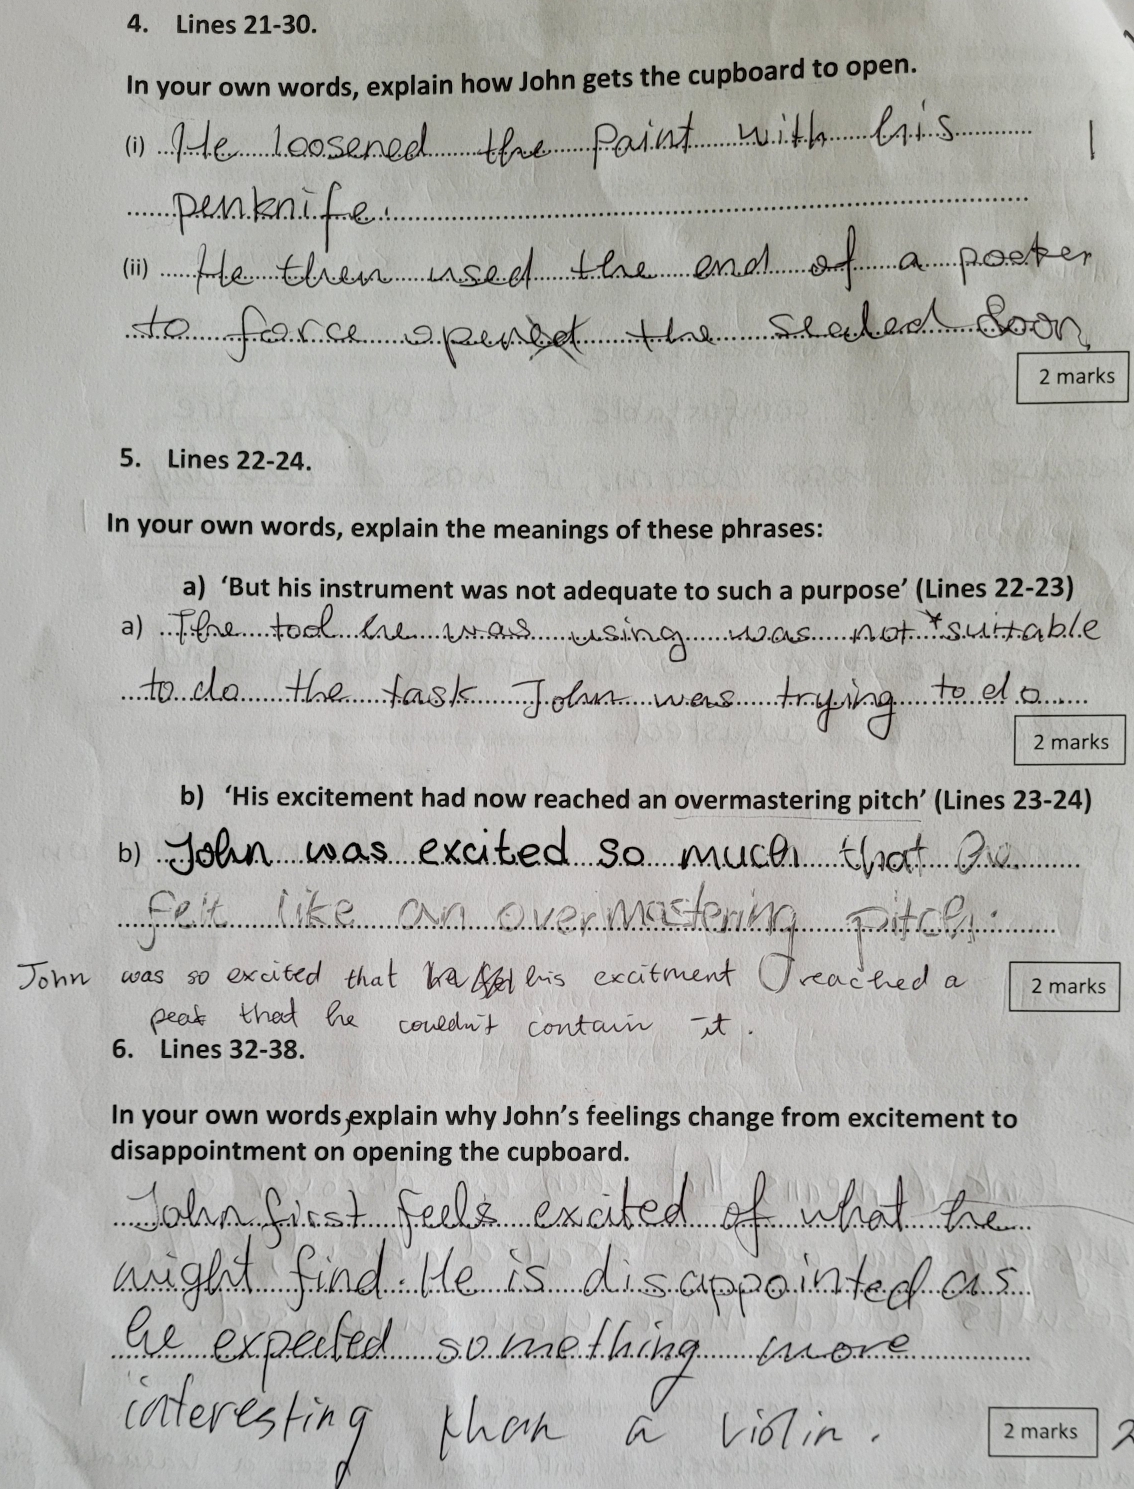 4. Lines 21-30.
In your own words, explain how John gets the cupboard to open.
(i) He loosened the paint with his 1
penknife.
(ii) He then used the end of a poeker
to force open the sealed door,
2 marks
5. Lines 22-24.
In your own words, explain the meanings of these phrases:
a) ‘But his instrument was not adequate to such a purpose’ (Lines 22-23)
a) The tool he was using was not *suitable
to do the task John was trying to do
2 marks
b) ‘His excitement had now reached an overmastering pitch’ (Lines 23-24)
b) John was excited so much that he
felt like an overmastering pitch.
John was so excited that his excitment reached a
2 marks
peak that he couldn't contain it.
6. Lines 32-38.
In your own words, explain why John’s feelings change from excitement to
disappointment on opening the cupboard.
John first feels excited of what he
might find. He is disappointed as
he expected something more
interesting than a violin.
2 marks 2